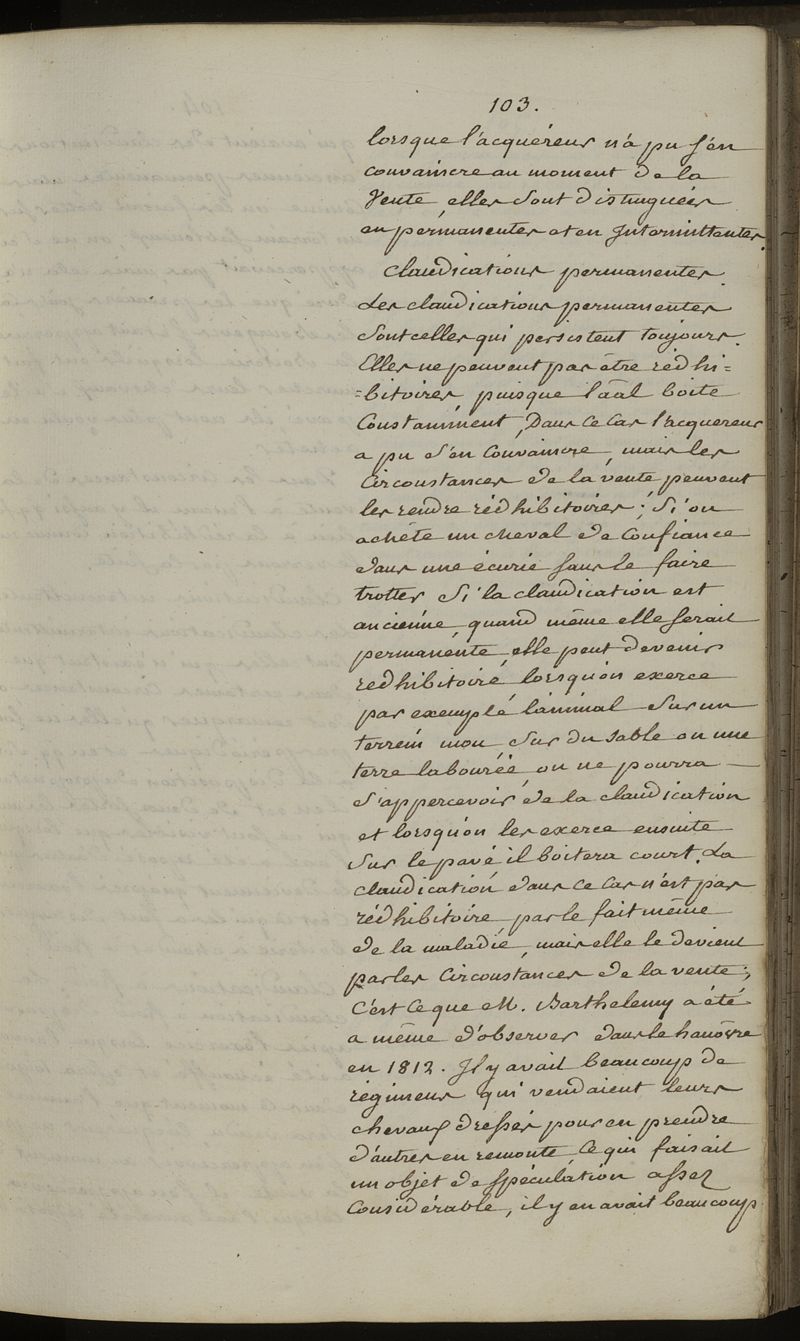 103.
lorsque l'acquéreur n'a pu s'en
convaincre au moment de la
vente, elles sont distinguées
en permanentes et en Intermittentes.
Claudications permanentes.
Les claudications permanentes
sont celles qui persistent toujours.
Elles ne peuvent pas être rédhi=
=bitoires puisque l'aãl boite
Constamment, Dans ce Cas l'acquereur
a pu s'en Convaincre, mais les
Circonstances de la vente peuvent
les rendre rédhibitoires; Si on
achète un cheval de Confiance
dans une écurie sans le faire
trotter Si la claudication est
ancienne, quand même elle serait
permanente, elle peut devenir
redhibitoire, lorsqu'on exerce
par exemple l'animal Sur un
terrein mou Sur du sable ou une
terre labourée, on ne pourra
S'appercevoir de la claudication
et lorsqu'on les exerce ensuite
Sur le pavé il boitera court. La
claudication dans ce Cas n'est pas
rédhibitoire par le fait même
de la maladie, mais elle le devient
par les Circonstances de la vente;
C'est Ce que M. Barthelemy a été
a même d'observer dans le hanôvre
en 1812. Il y avait beaucoup de
régimens qui vendaient leurs
chevaux dressés pour en prendre
d'autres en remonte, Ce qui faisait
un objet de spéculation assez
Considérable, il y en avait beaucoup